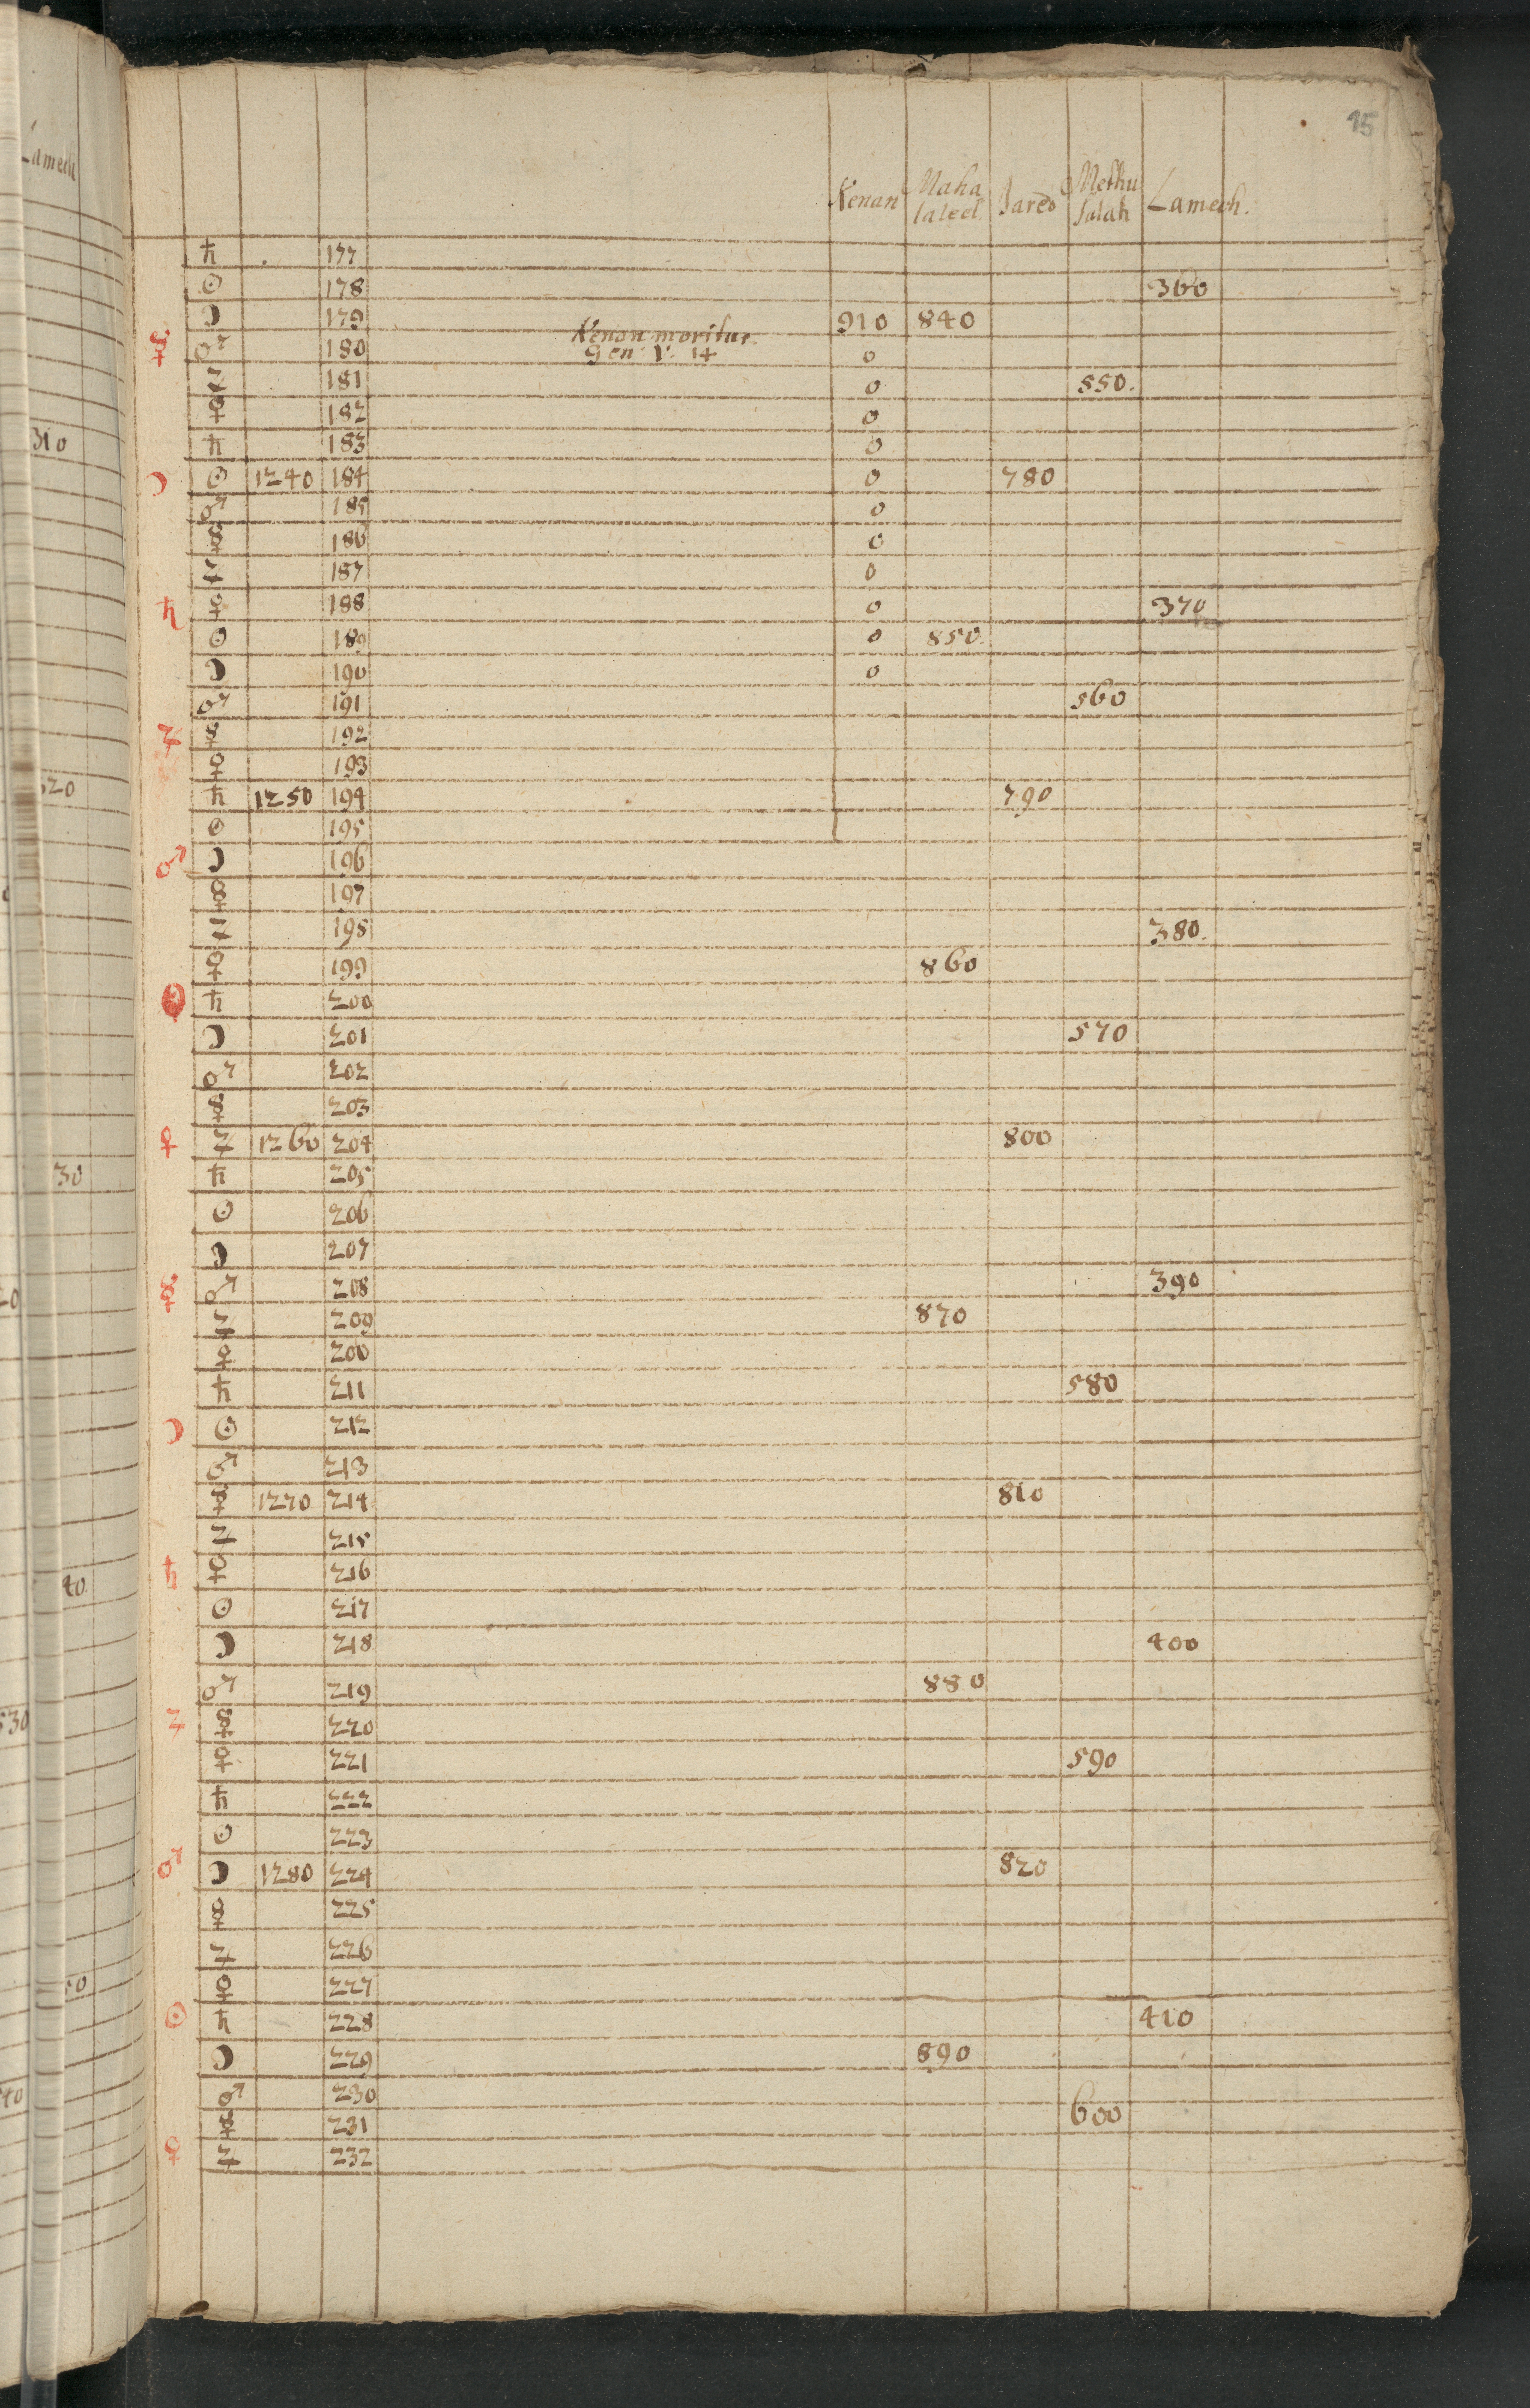 15
Kenan Maha laleel. Jared Methu salah Lamech.
♄ 177
☉ 178 360
☽ 179 910 840
☿ ♂ 180 Kenan moritur. Gen V. 14 0
♃ 181 0 550.
♀ 182 0
♄ 183 0
☽ ☉ 1240 184 0 780
♂ 185 0
☿ 186 0
♃ 187 0
♄ ♀ 188 0 370
☉ 189 0 850.
☽ 190 0
♂ 191 560
♃ ☿ 192
♀ 193
♄ 1250 194 790
☉ 195
♂ ☽ 196
☿ 197
♃ 195 380.
♀ 199 860
☉ ♄ 200
☽ 201 570
♂ 202
☿ 203
♀ ♃ 1260 204 800
♄ 205
☉ 206
☽ 207
☿ ♂ 208 390
♃ 209 870
♀ 200
♄ 211 580
☽ ☉ 212
♂ 213
☿ 1270 214 810
♃ 215
♄ ♀ 216
☉ 217
☽ 218 400
♂ 219 880
♃ ☿ 220
♀ 221 590
♄ 222
☉ 223
♂ ☽ 1280 224 820
☿ 225
♃ 226
♀ 227
☉ ♄ 228 410
☽ 229 890
♂ 230
☿ 231 600
♀ ♃ 232
Lamech
310
320
30
40
530
50
40